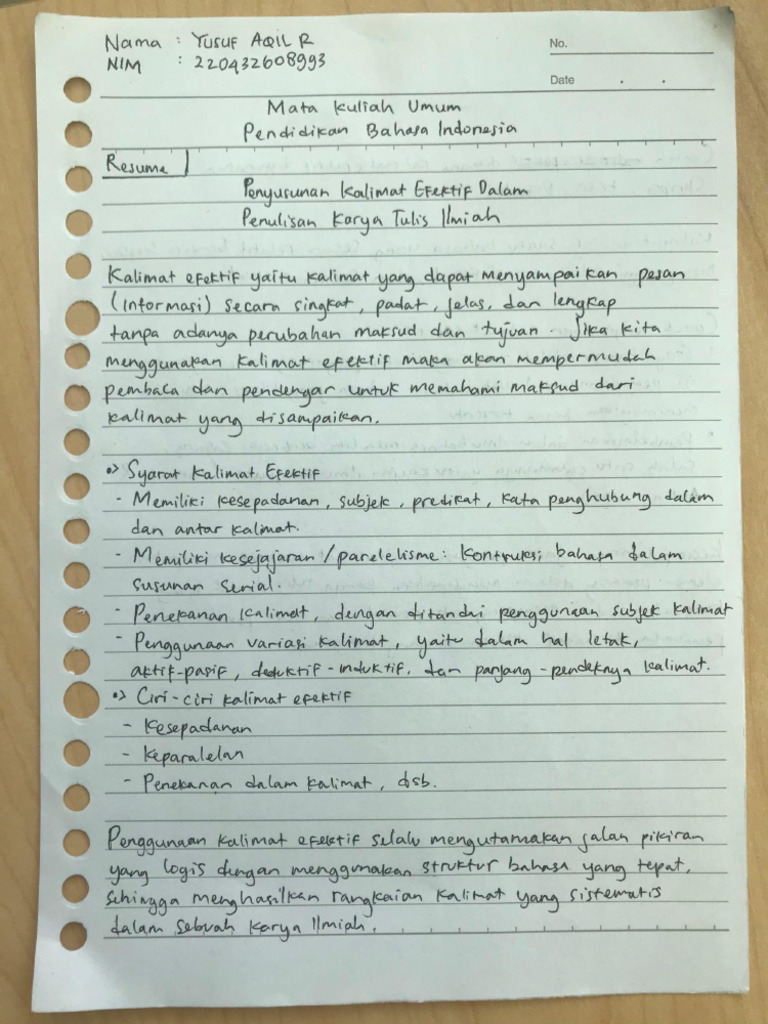 Nama : YUSUF AQIL R
NIM : 220432608993
No.
Date . .
Mata Kuliah Umum
Pendidikan Bahasa Indonesia
Resume
Penyusunan Kalimat Efektif Dalam
Penulisan Karya Tulis Ilmiah
Kalimat efektif yaitu kalimat yang dapat menyampaikan pesan
(Informasi) secara singkat, padat, jelas, dan lengkap
tanpa adanya perubahan maksud dan tujuan. Jika kita
menggunakan kalimat efektif maka akan mempermudah
pembaca dan pendengar untuk memahami maksud dari
kalimat yang disampaikan.
•> Syarat Kalimat Efektif
- Memiliki kesepadanan, subjek, predikat, kata penghubung dalam
dan antar kalimat.
- Memiliki kesejajaran/parelelisme: kontruksi bahasa dalam
susunan serial.
- Penekanan kalimat, dengan ditandai penggunaan subjek kalimat
- Penggunaan variasi kalimat, yaitu dalam hal letak,
aktif-pasif, deduktif-induktif, dan panjang-pendeknya kalimat.
•> Ciri-ciri kalimat efektif
- Kesepadanan
- Keparalelan
- Penekanan dalam kalimat, dsb.
Penggunaan kalimat efektif selalu mengutamakan jalan pikiran
yang logis dengan menggunakan struktur bahasa yang tepat,
sehingga menghasilkan rangkaian kalimat yang sistematis
dalam sebuah karya Ilmiah.